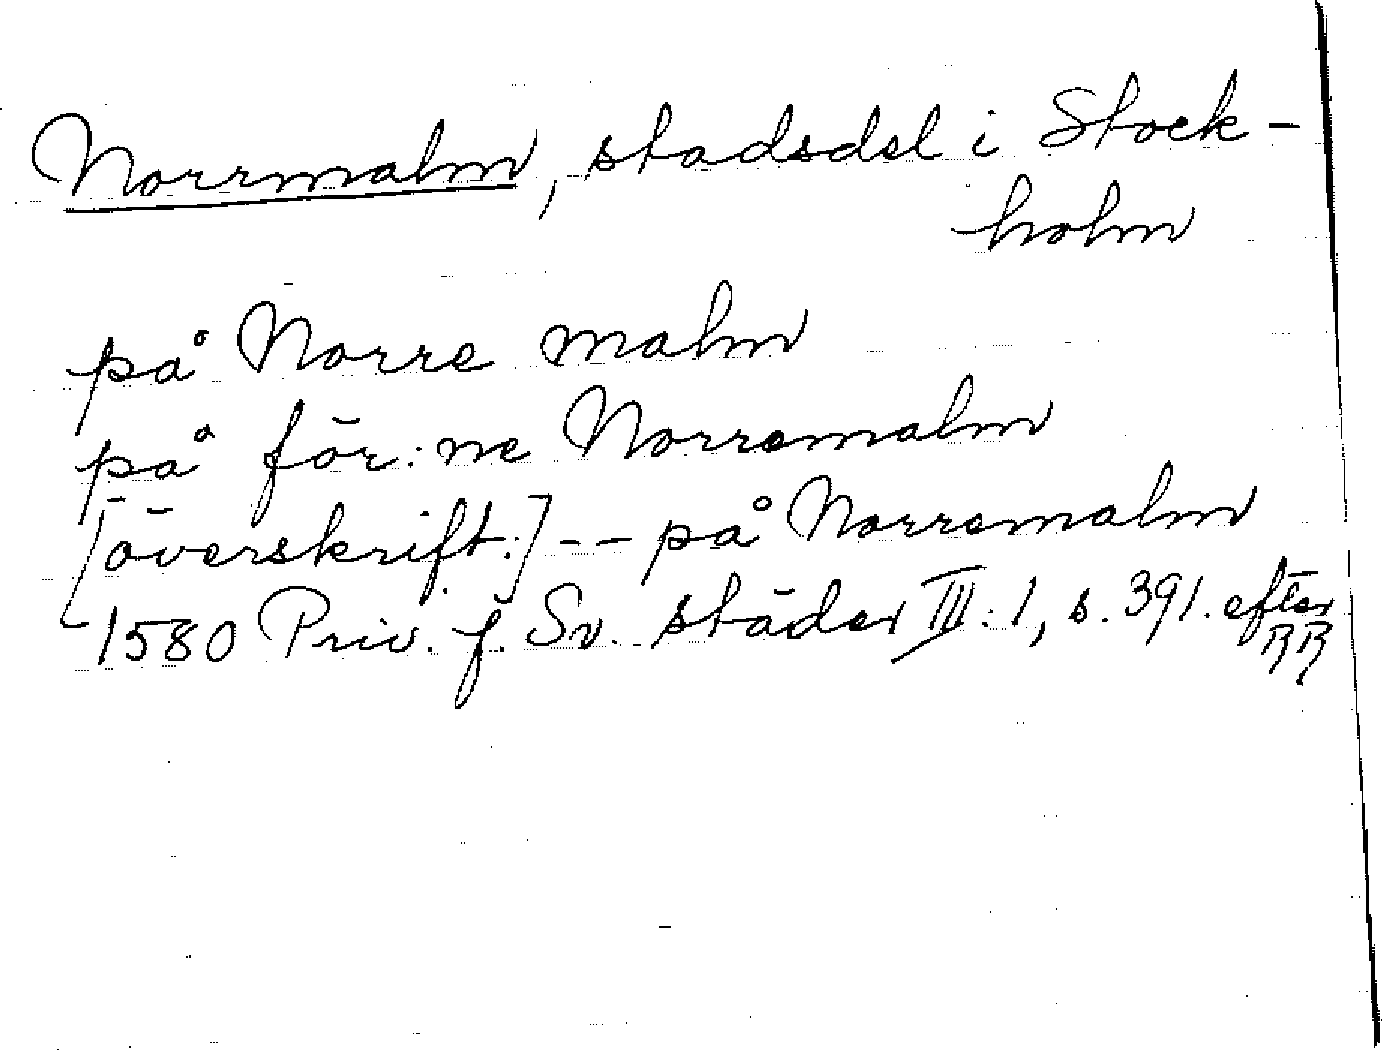 Norrmalm, stadsdel i Stock-
holm
på Norre malm
på för:ne Norremalm
[överskrift:] -- på Norremalm
1580 Priv. f. Sv. städer III:1, s. 391. efter
RR